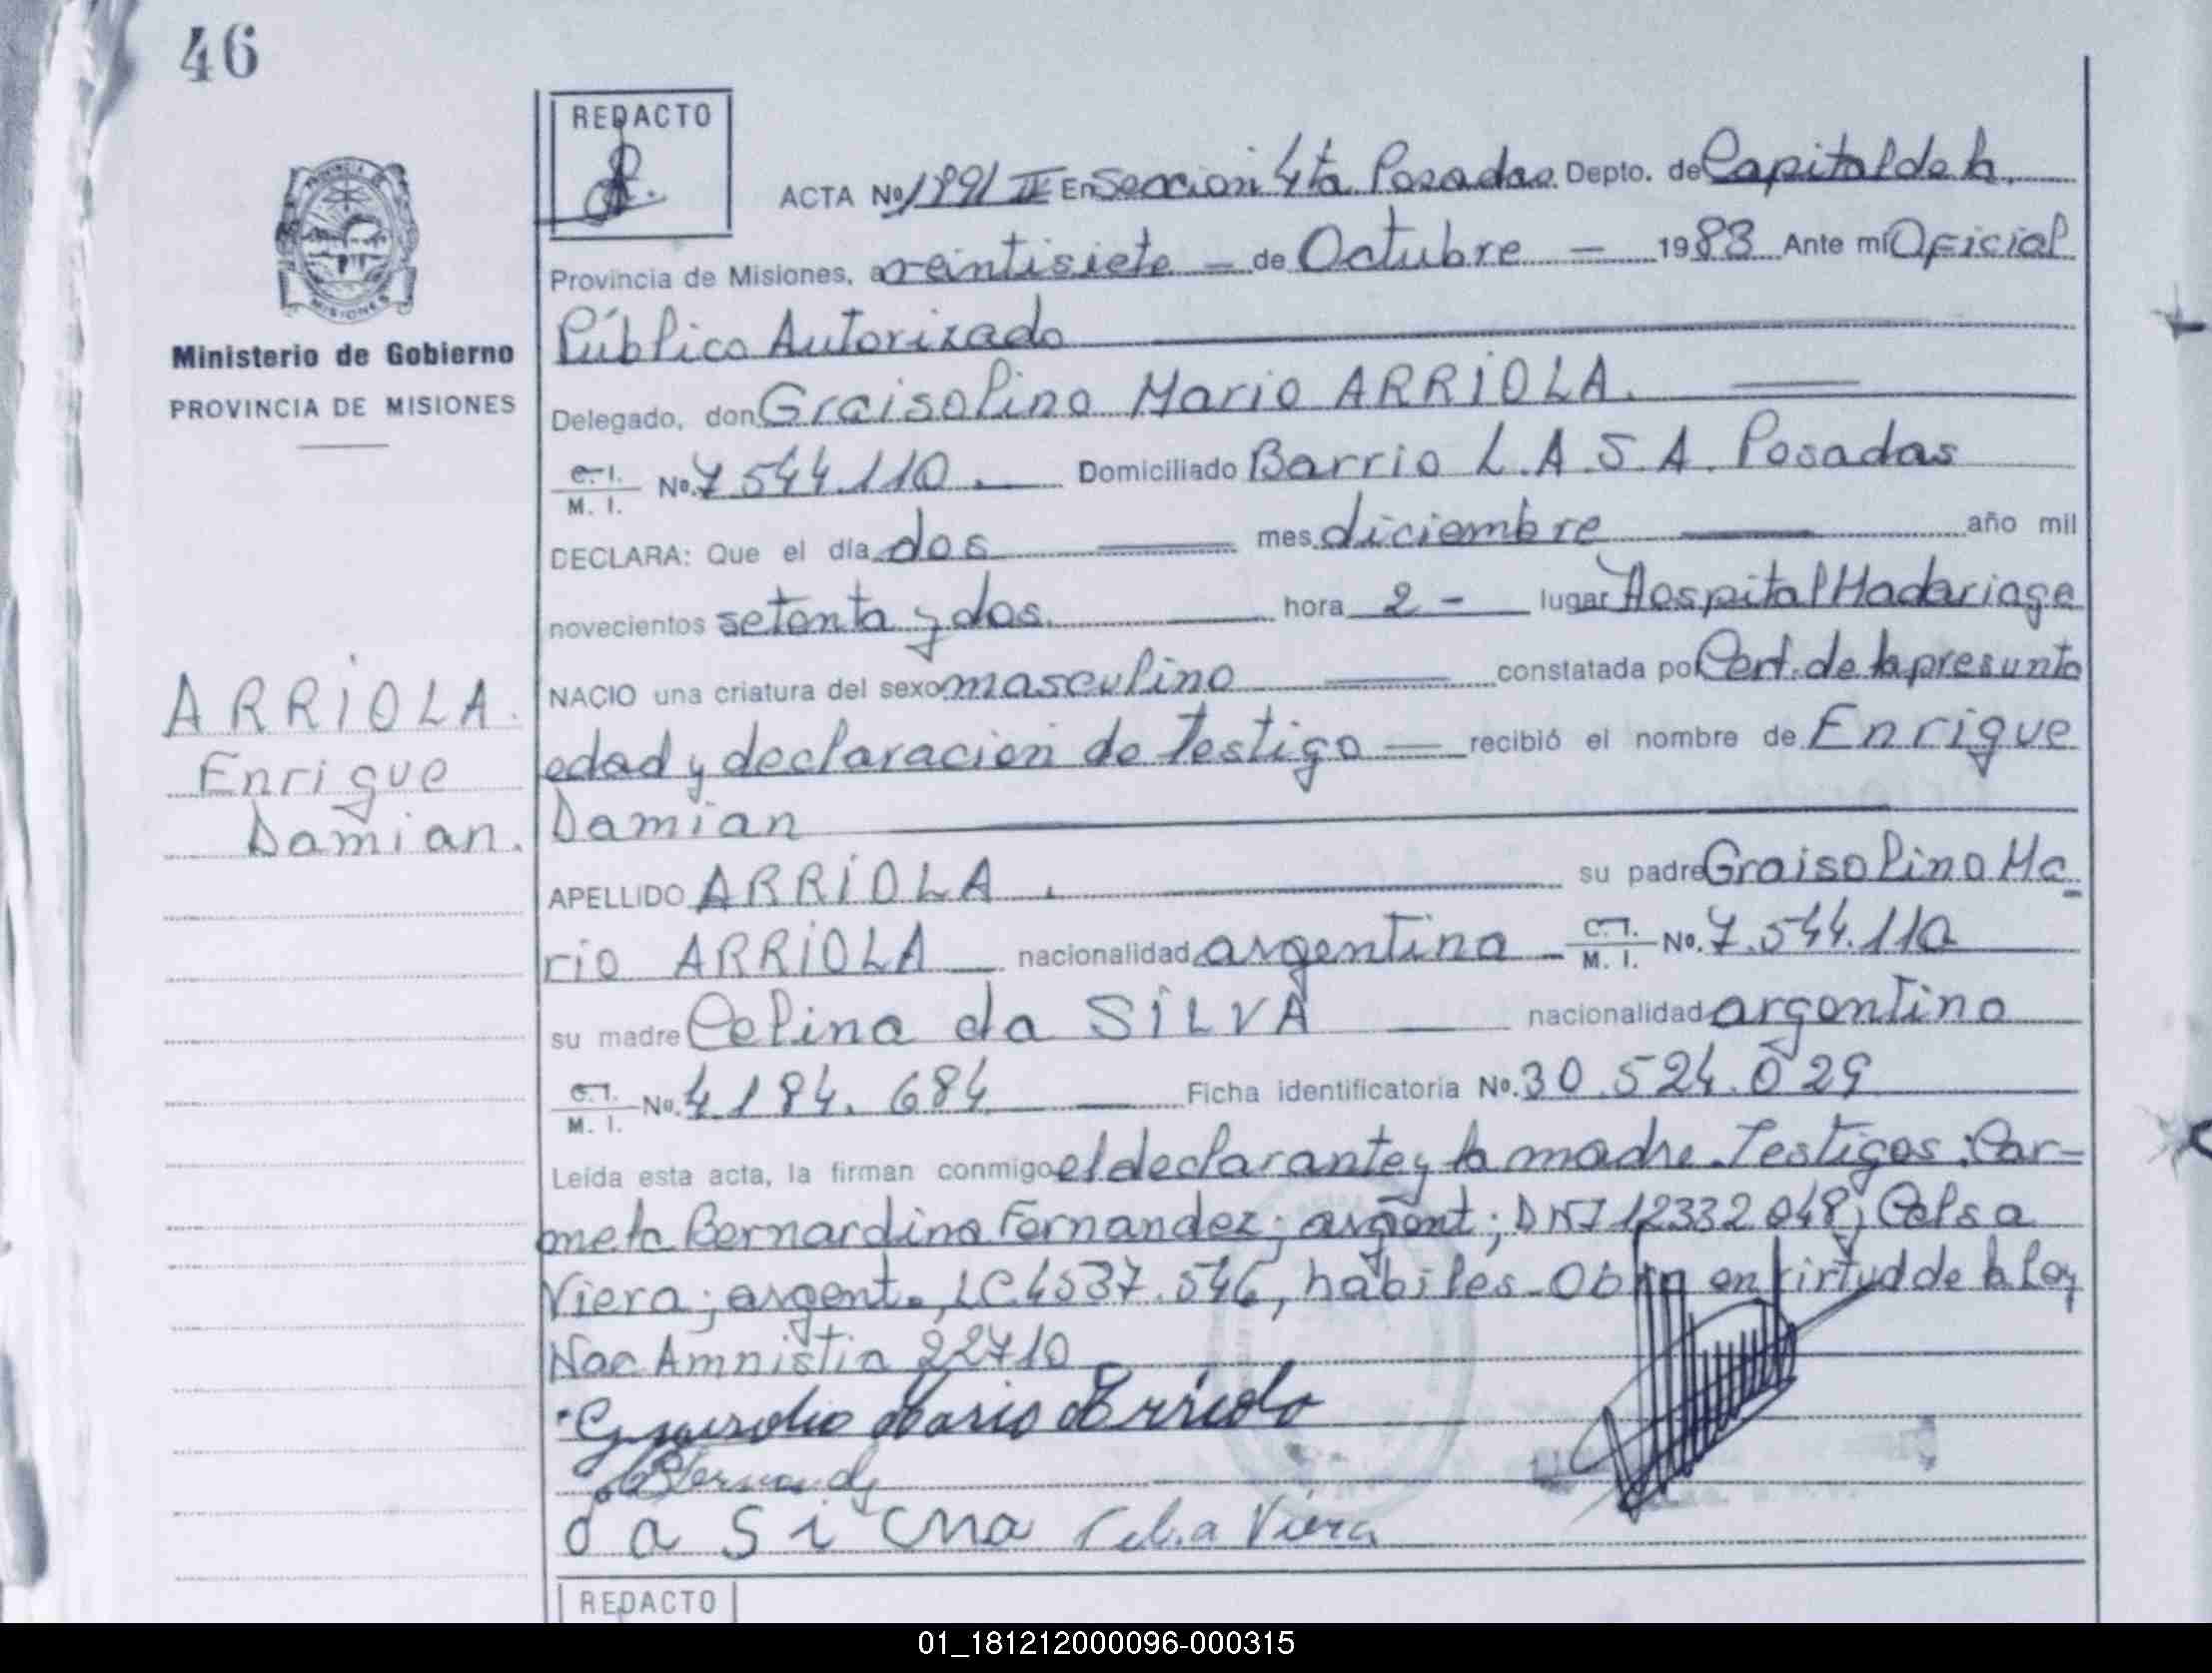 46
REDACTO
ACTA Nº 1891 II En Seccion 4ta Posadas Depto. de Capital de la
Provincia de Misiones, a veintisiete — de Octubre — 1983 Ante mí Oficial
Público Autorizado
Ministerio de Gobierno
PROVINCIA DE MISIONES
Delegado, don Graisolino Mario ARRIOLA.
C. I. M. I. Nº 7.544.110. Domiciliado Barrio L.A.S.A. Posadas
DECLARA: Que el día dos mes diciembre año mil
novecientos setenta y dos hora 2 - lugar Hospital Madariaga
NACIO una criatura del sexo masculino constatada por Cert. de la presunta
edad y declaración de testigo — recibió el nombre de Enrique
Damian
ARRIOLA.
Enrique
Damian.
APELLIDO ARRIOLA. su padre Graisolino Ma-
rio ARRIOLA nacionalidad argentina - C. I. M. I. No. 7.544.110
su madre Celina da SILVA nacionalidad argentina
C. I. M. I. No. 4.184.684 Ficha identificatoria Nº. 30.524.029
Leída esta acta, la firman conmigo el declarante y la madre. Testigos: Car-
mela Bernardina Fernandez; argent; DNI 12332048; Celsa
Viera; argent., LC 4537.546, hábiles - Obra en virtud de la Ley
Nac Amnistia 22710
Mario Arriola
da Viera
REDACTO
01_181212000096-000315